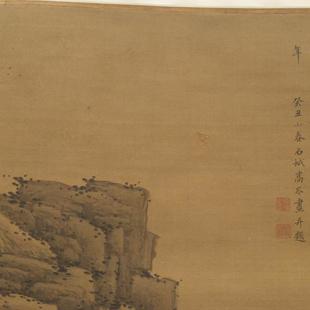 年
癸丑小春石城高岑畫并題